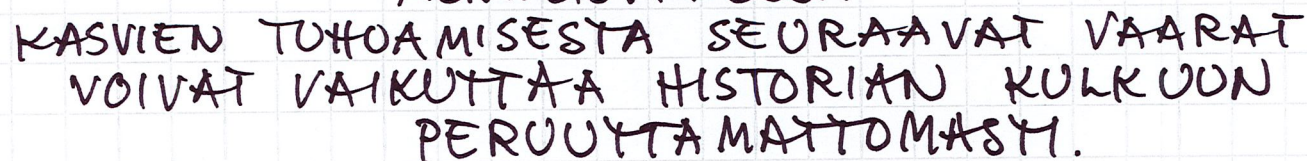 KASVIEN TUHOAMISESTA SEURAAVAT VAARAT
VOIVAT VAIKUTTAA HISTORIAN KULKUUN
PERUUTTAMATTOMASTI.